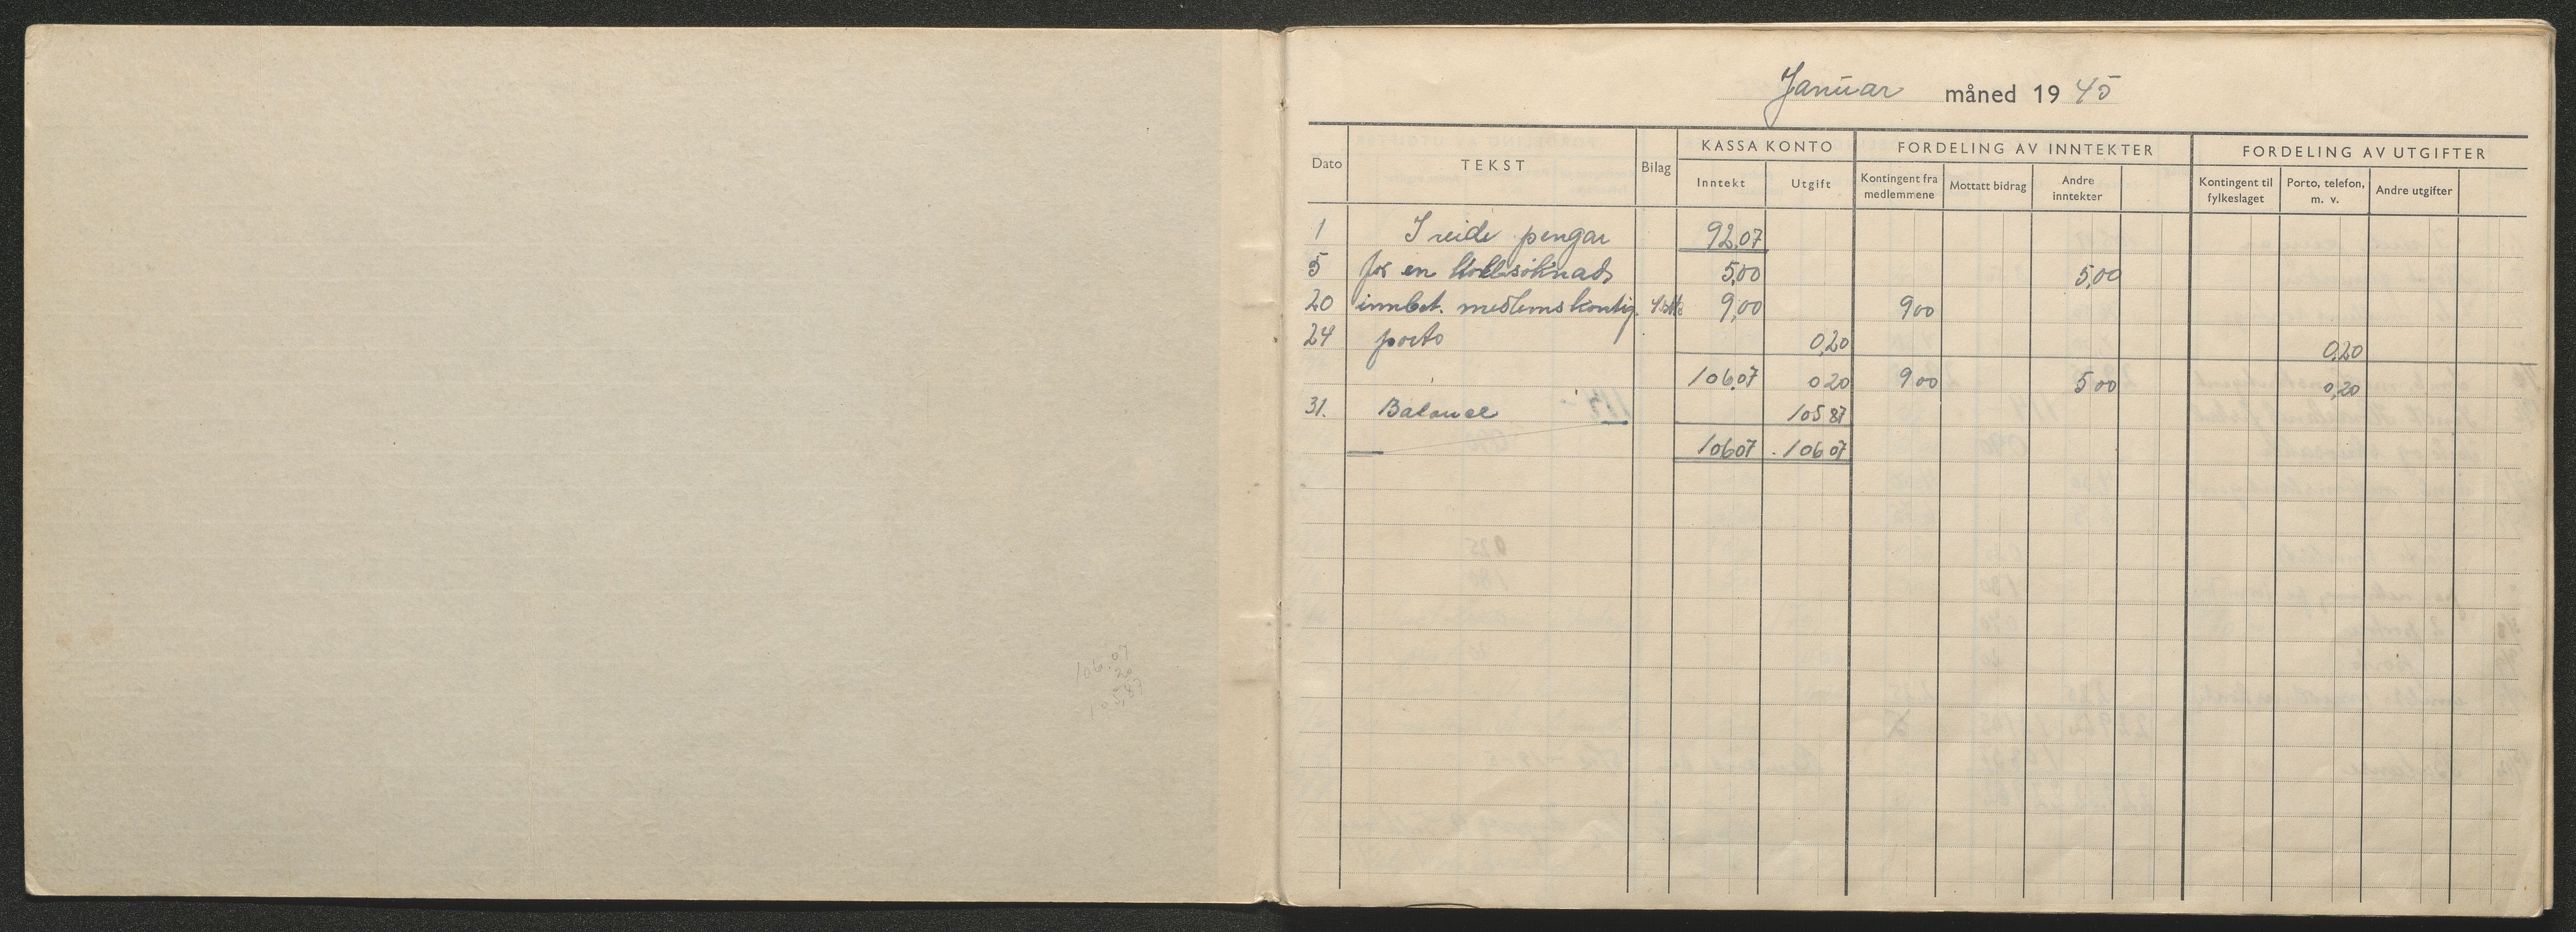 106,07
20
105,87
Januar måned 19 45
Dato TEKST Bilag KASSA KONTO FORDELING AV INNTEKTER FORDELING AV UTGIFTER
Inntekt Utgift Kontingent fra medlemmene Mottatt bidrag Andre inntekter Kontingent til fylkeslaget Porto, telefon, m. v. Andre utgifter
1 I reide pengar 92,07
5 for en 5,00 5,00
20 innbet. medlemskontig. 9,00 900
24 porto 0,20 0,20
106,07 020 900 500 0,20
31. Balanse 105 87
10607 106 07